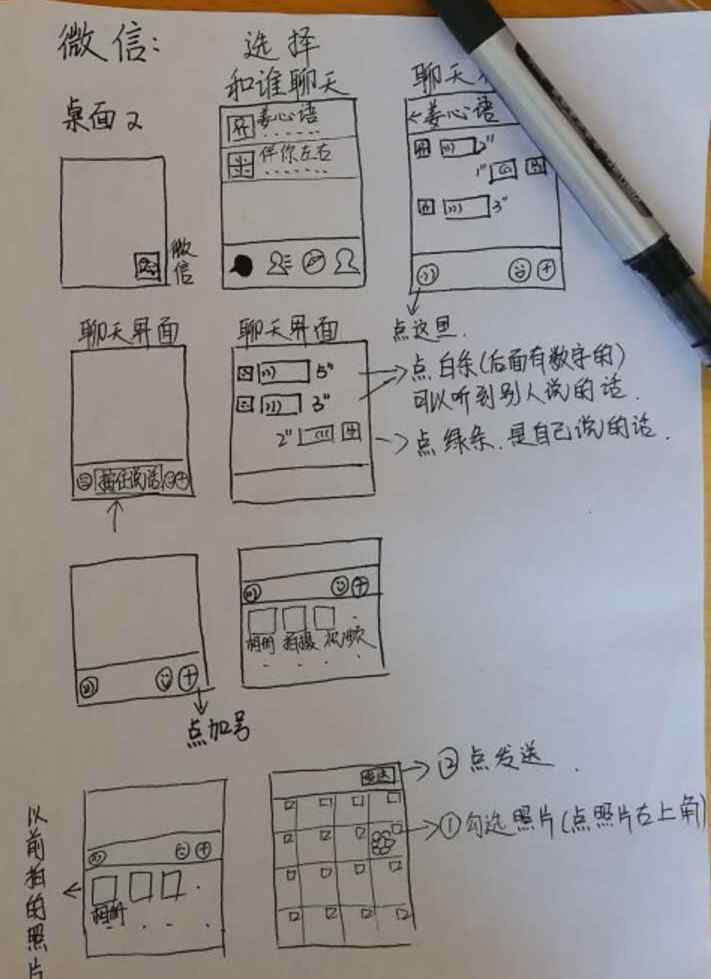 微信:
选择
和谁聊天
聊天
桌面2
微信
姜心语
伴你左右
←姜心语
2"
1"
3"
点这里.
聊天界面
聊天界面
按住说话
5"
3"
2"
点白条(后面有数字的)
可以听到别人说的话.
点绿条.是自己说的话.
相册 拍摄 视频
点加号
以前拍的照片
相册
发送
②点发送.
①勾选照片(点照片右上角)